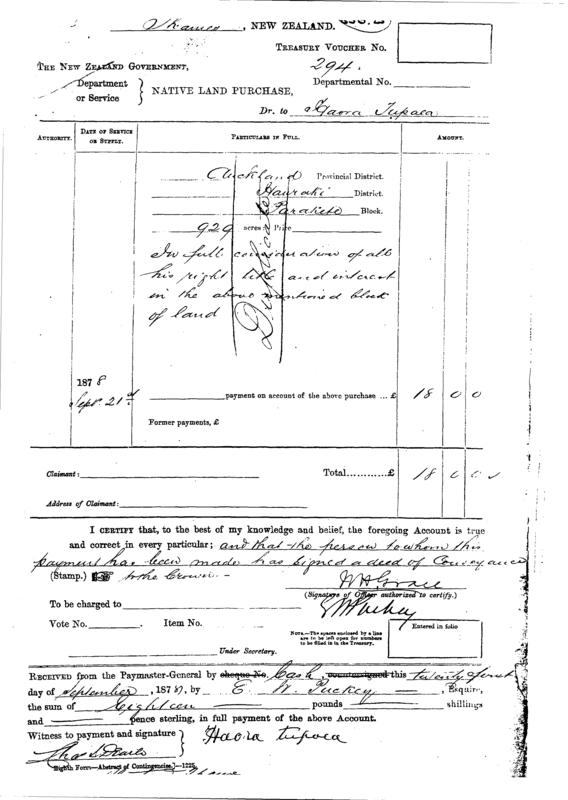 Thames, NEW ZEALAND.
TREASURY VOUCHER No.
294.
THE NEW ZEALAND GOVERNMENT,
Department
or Service } NATIVE LAND PURCHASE,
Departmental No.
Dr. to Haora Tupaea
AUTHORITY. DATE OF SERVICE OR SUPPLY. PARTICULARS IN FULL. AMOUNT.
Auckland Provincial District.
Hauraki District.
Block.
929 acres Price
Duplicate
In full consideration of all
his right title and interest
in the above mentioned block
of land
1878
Sept. 21st payment on account of the above purchase ... £ 18 0 0
Former payments, £
Claimant: Total............£ 18 0 0
Address of Claimant:
I CERTIFY that, to the best of my knowledge and belief, the foregoing Account is true
and correct in every particular; and that the person to whom this
payment has been made has signed a deed of Conveyance
(Stamp.) to the Crown.-
(Signature of Officer authorized to certify.)
To be charged to
Vote No. Item No.
Entered in folio
NOTE.—The spaces enclosed by a line
are to be left open for numbers
to be filled in the Treasury.
Under Secretary.
RECEIVED from the Paymaster-General by cheque No. Cash, countersigned this twenty first
day of September, 187 , by E. W. Puckey, Esquire,
the sum of Eighteen pounds shillings
and pence sterling, in full payment of the above Account.
Witness to payment and signature }
Haora tupaea
Eighth Form—Abstract of Contingencies.]—1225.